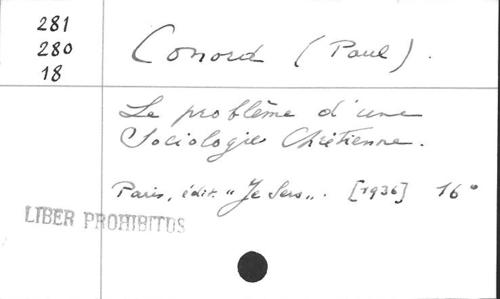 281
280
18
Conord (Paul).
Le problème d'une
Sociologie Chrétienne.
Paris, édit. "Je Sers". [1936] 16°
LIBER PROHIBITUS